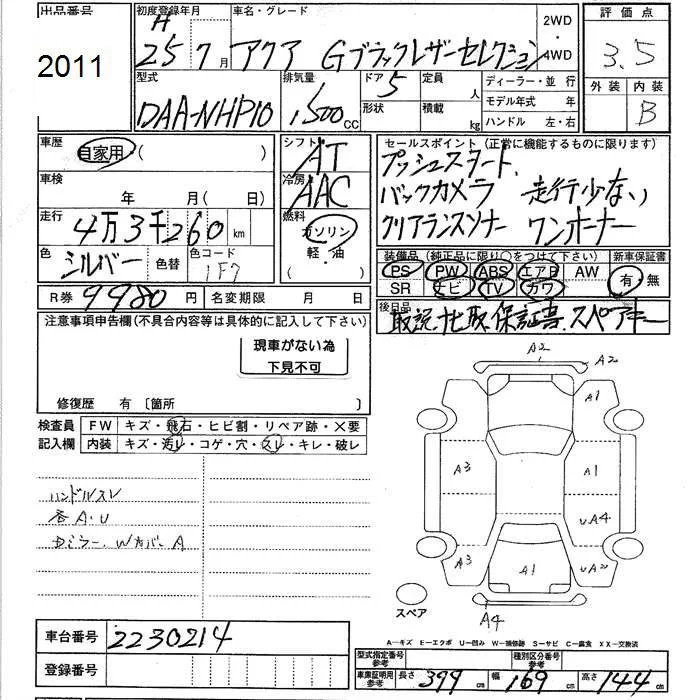 出品番号
2011
初度登録年月
H
25 7月
車名・グレード
アクア Gブラックレザーセレクション
2WD
・
4WD
評価点
3.5
外装 内装
B
型式
DAA-NHP10
排気量
1,500 CC
ドア 5
形状
定員 人
積載 kg
ディーラー・並行
モデル年式 年
ハンドル 左・右
車歴
自家用・( )
シフト
AT
セールスポイント (正常に機能するものに限ります)
プッシュスタート、
バックカメラ 走行少ない
クリアランスソナー ワンオーナー
車検
年 月( 日)
冷房
AAC
走行
4万3千260 km
燃料
ガソリン
軽・油
( )
色
シルバー
色替
色コード
1F7
装備品 (純正品に限り○をつけて下さい)
PS PW ABS エアB AW
SR ナビ TV カワ
新車保証書
有・無
R券 9980円
名変期限 月 日
後日品
取説、ナビ取、保証書、スペアキー
注意事項申告欄(不具合内容等は具体的に記入して下さい)
現車がない為
下見不可
修復歴 有 〔箇所 〕
検査員
記入欄
FW キズ・飛石・ヒビ割・リペア跡・X要
内装 キズ・汚レ・コゲ・穴・スレ・キレ・破レ
ハンドルスレ
各A・U
Dミラー、WカバーA
A2
A2
A1
A3
A1
UA4
A3
A1
UA2
A4
スペア
A―キズ E―エクボ U―凹み W―補修跡 S―サビ C―腐食 XX―交換済
車台番号 2230214
登録番号
型式指定番号
参考
種別区分番号
参考
車庫証明用
参考
長さ 399 cm 幅 169 cm 高さ 144 cm